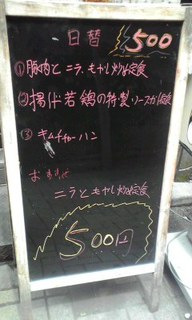 日替 500
①豚肉とニラ、モヤシ炒め定食
②揚げ若鶏の特製ソースがけ定食
③キムチチャーハン
ニラとモヤシ炒め定食
500円